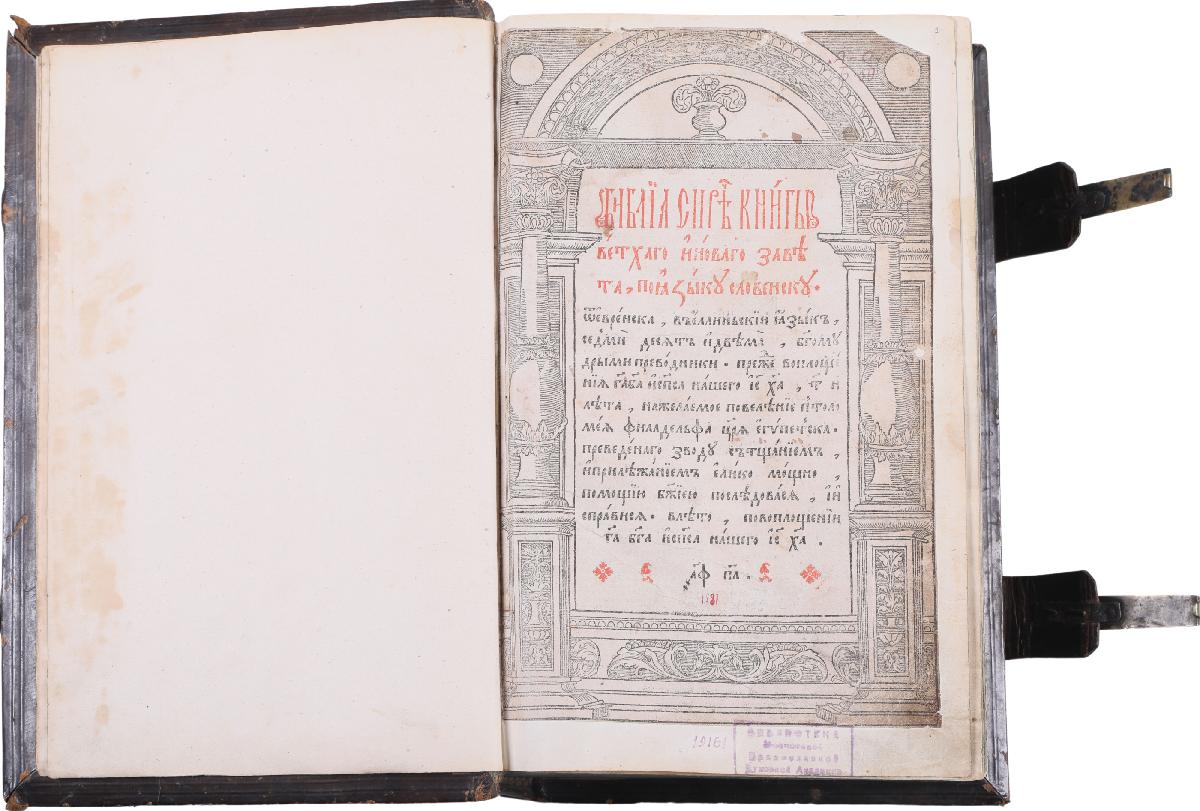 БИБЛІА СИРѢ КНИГЫ
ВЕ́ТХАГО И҆НО́ВАГО ЗАВѢ
ТА, ПОꙖ҆ЗЫ́КУ СЛОВЕНСКУ.
Ѿеврѐйска, въе́ллиньскїй ꙗ҆зы́къ,
се́дмїй десѧтъ и҆двѣмѧ̀, бг҃ому
дрыми прево́дники. пре́жⷣе воплоще́
нїѧ гⷭ҇а бг҃а и҆сп҃са на́шего і҆с҃ хр҃а,
лѣ́та, нажела́емое повелѣ́нїе птоло
ме́ѧ филаде́льфа цр҃ѧ є҆гу́петска.
преведе́наго зво́ду сътща́нїемъ,
и҆прилѣжа́нїемъ є҆ли́ко мо́щно,
по́мощїю бж҃їею послѣ́довасѧ, и҆
спра́висѧ. влѣ́то, повоплоще́нїи
гⷭ҇а бг҃а и҆сп҃са на́шего і҆с҃ хр҃а.
҂аф па.
1581
19161
БИБЛИОТЕКА
Московской
Православной
Духовной Академии